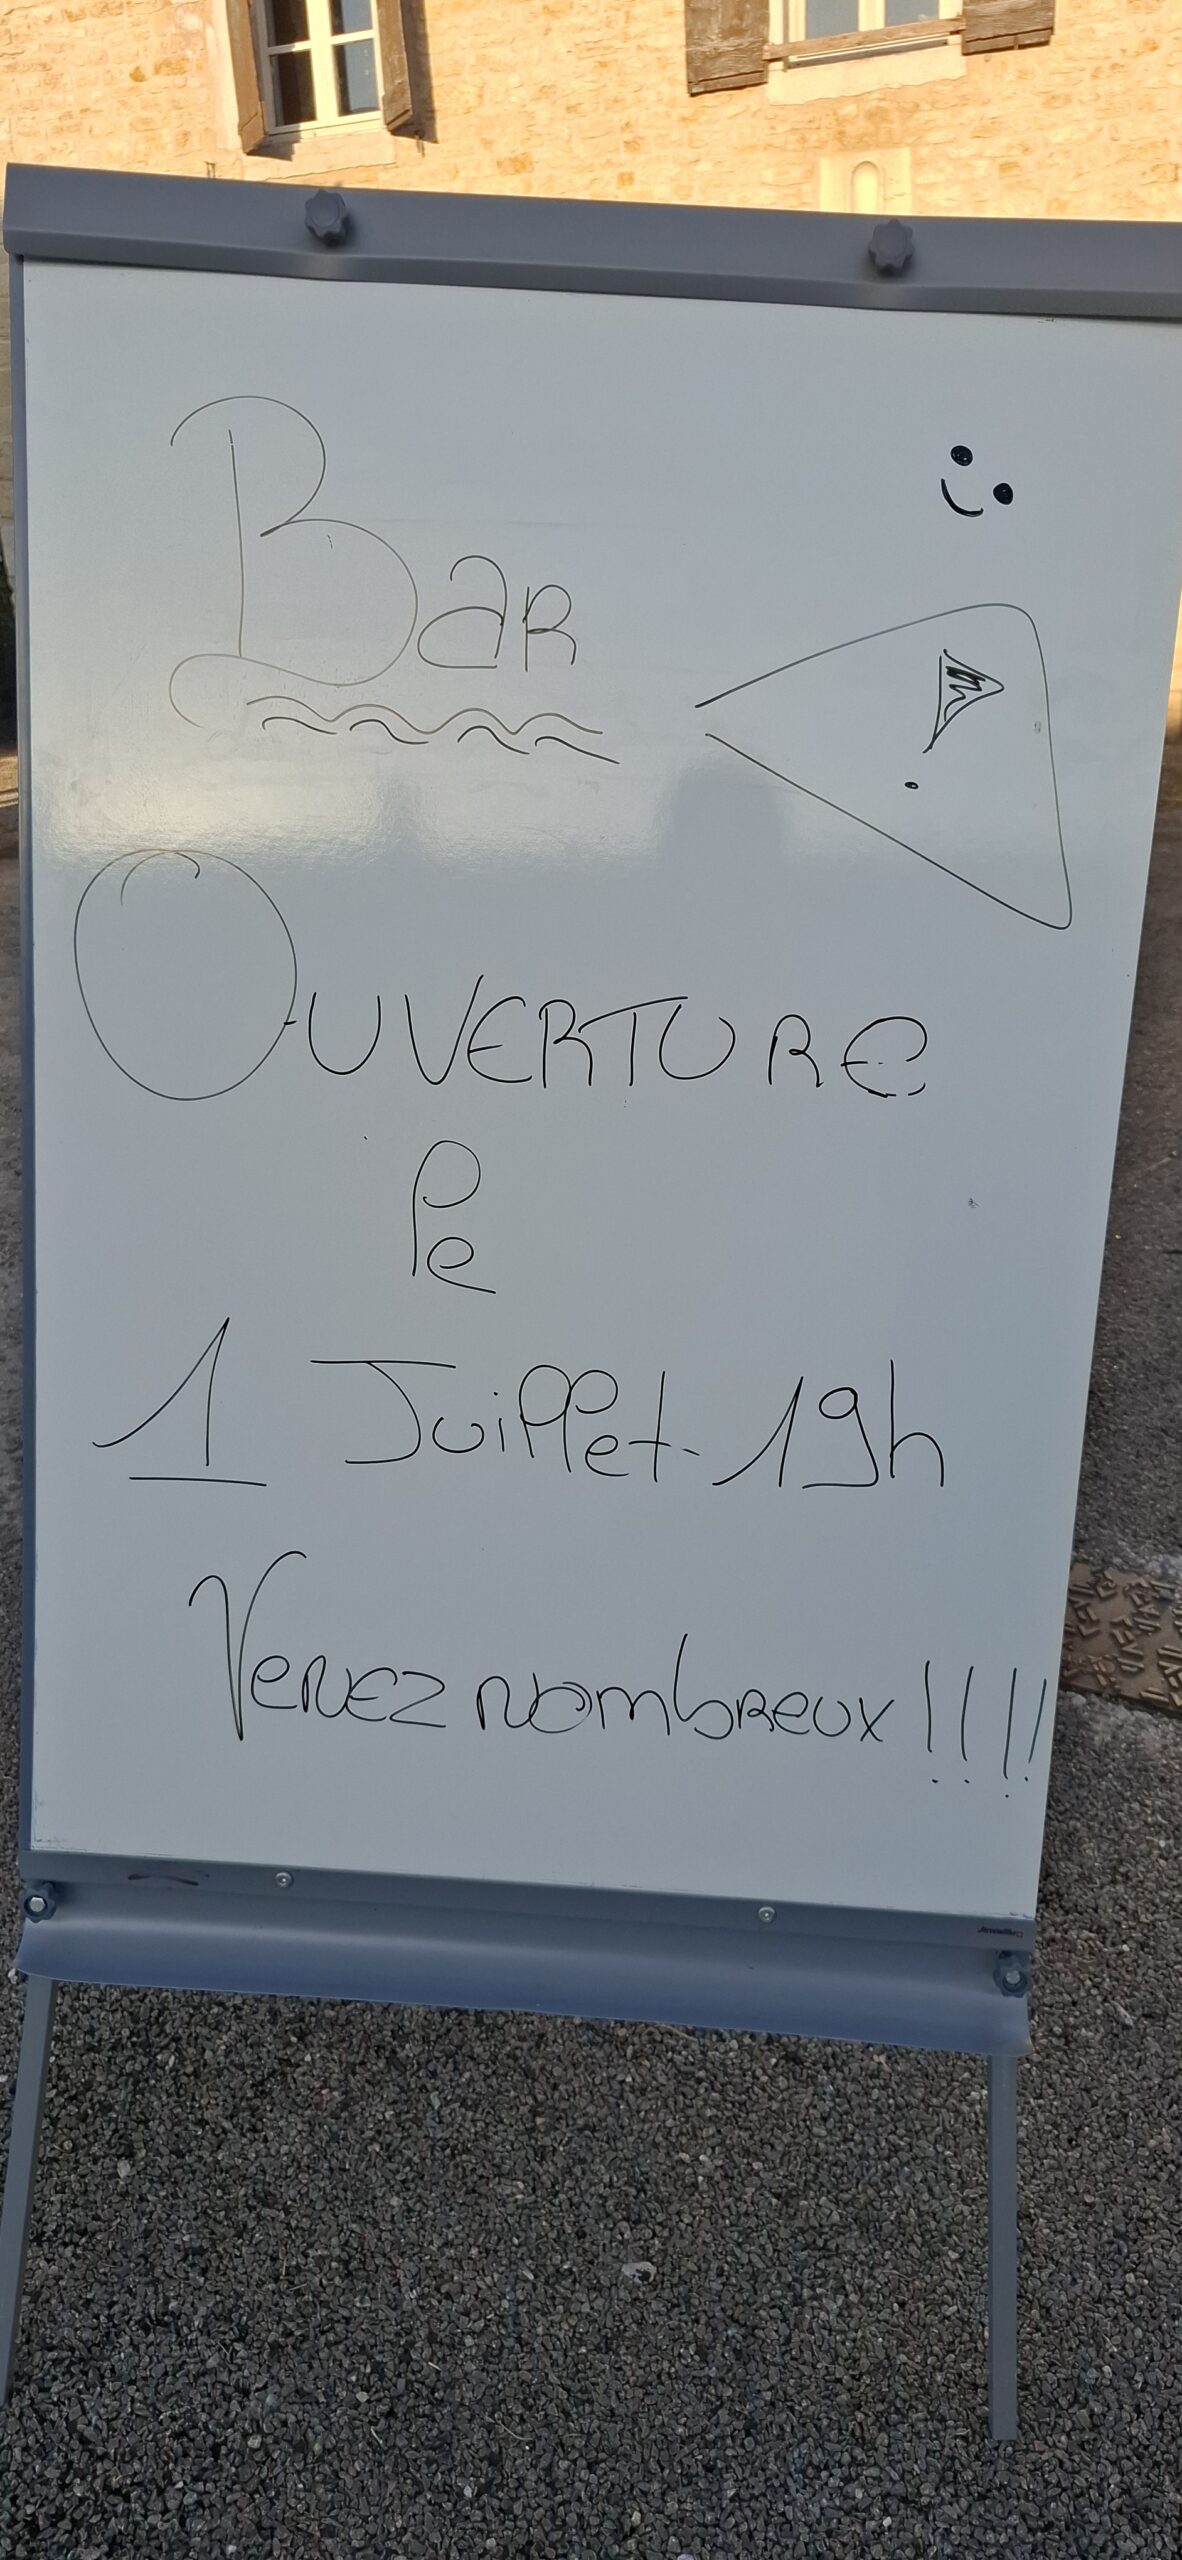 Bar
!
Ouverture
le
1 Juillet - 19h
Venez nombreux !!!!